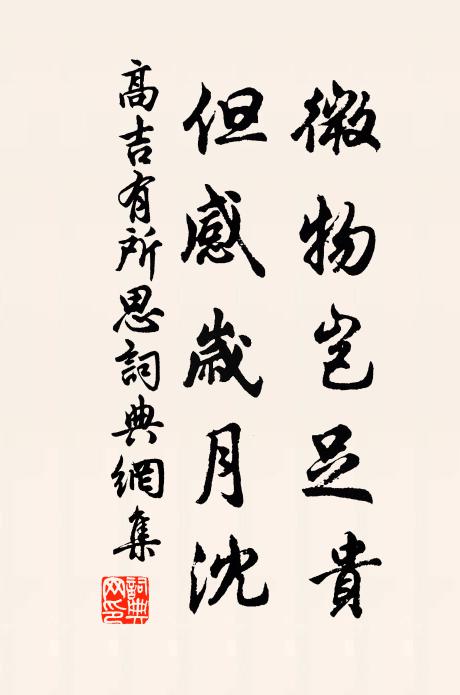 微物岂足貴
但感歳月沈
高吉有所思詞典網集
詞典网印